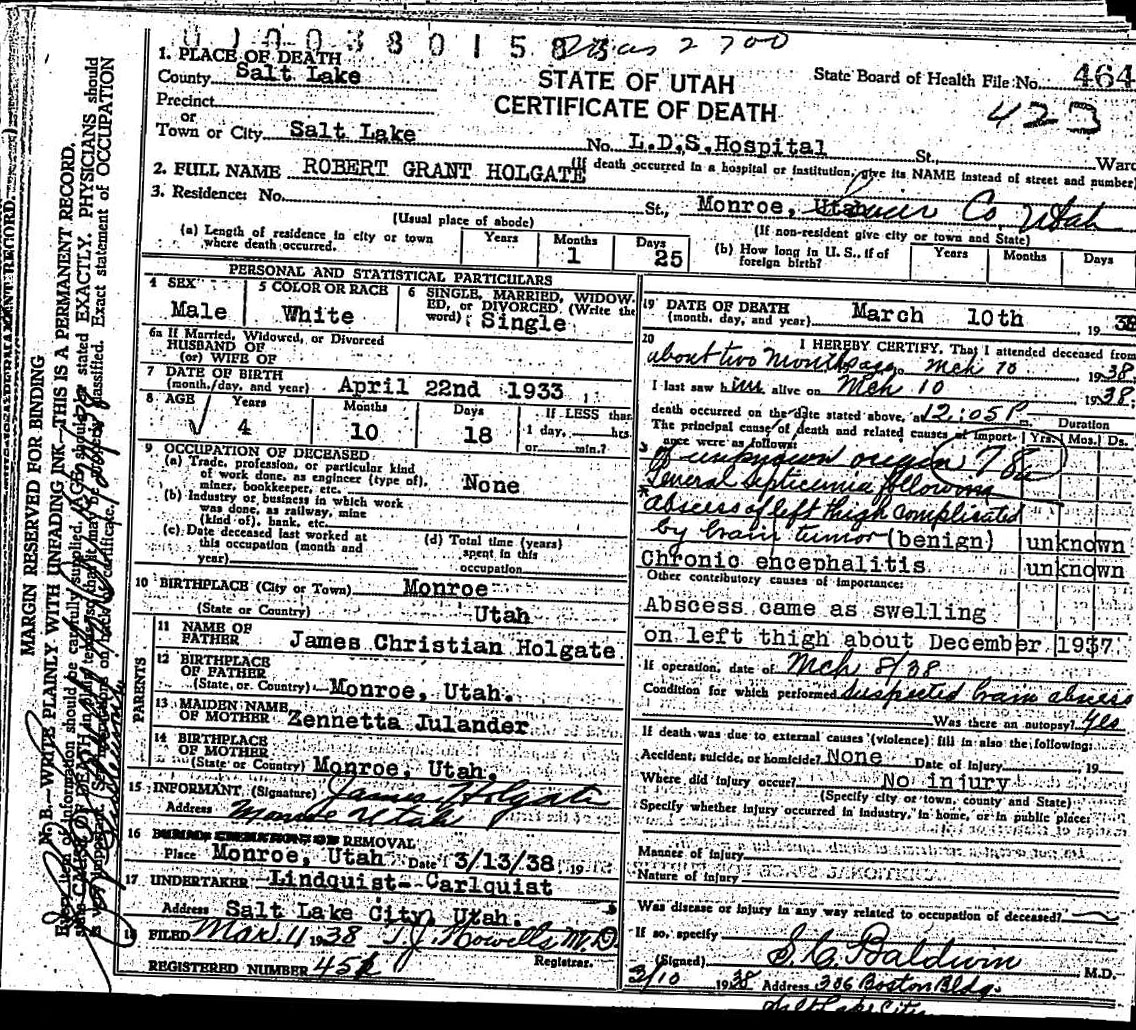 0100380158
2 700
1. PLACE OF DEATH
County Salt Lake
Precinct
or
Town or City Salt Lake
STATE OF UTAH
CERTIFICATE OF DEATH
State Board of Health File No. 464
423
No. L.D.S. Hospital St., Ward
(If death occurred in a hospital or institution, give its NAME instead of street and number)
2. FULL NAME ROBERT GRANT HOLGATE
3. Residence: No. St., Monroe, Utah Sevier Co, Utah
(Usual place of abode)
(If non-resident give city or town and State)
(a) Length of residence in city or town where death occurred. Years Months 1 Days 25
(b) How long in U. S., if of foreign birth? Years Months Days
PERSONAL AND STATISTICAL PARTICULARS
4 SEX Male
5 COLOR OR RACE White
6 SINGLE, MARRIED, WIDOWED, or DIVORCED. (Write the word) Single
6a If Married, Widowed, or Divorced
HUSBAND OF
(or) WIFE OF
7 DATE OF BIRTH
(month, day, and year) April 22nd 1933
8 AGE Years 4 Months 10 Days 18 If LESS than 1 day, hrs. or min.?
9 OCCUPATION OF DECEASED
(a) Trade, profession, or particular kind of work done, as engineer (type of), miner, bookkeeper, etc. None
(b) Industry or business in which work was done, as railway, mine (kind of), bank, etc.
(c) Date deceased last worked at this occupation (month and year)
(d) Total time (years) spent in this occupation
10 BIRTHPLACE (City or Town) Monroe
(State or Country) Utah
PARENTS
11 NAME OF FATHER James Christian Holgate
12 BIRTHPLACE OF FATHER
(State or Country) Monroe, Utah.
13 MAIDEN NAME OF MOTHER Zennetta Julander
14 BIRTHPLACE OF MOTHER
(State or Country) Monroe, Utah.
15 INFORMANT, (Signature) James Holgate
Address Monroe Utah
16 BURIAL CREMATION OR REMOVAL
Place Monroe, Utah Date 3/13/38 19
17 UNDERTAKER Lindquist-Carlquist
Address Salt Lake City, Utah.
18 FILED Mar. 11 1938 T. J. Howells M.D.
Registrar.
REGISTERED NUMBER 45
19 DATE OF DEATH
(month, day, and year) March 10th, 1938
20 I HEREBY CERTIFY, That I attended deceased from
about two months ago to Mch 10 1938.
I last saw him alive on Mch 10 1938.
death occurred on the date stated above, at 12:05 P. m. Duration
The principal cause of death and related causes of importance were as follows: Yrs. Mos. Ds.
of unknown origin 78a
General Septicemia following
abscess of left thigh complicated
by brain tumor (benign) unknown
Chronic encephalitis unknown
Other contributory causes of importance:
Abscess came as swelling
on left thigh about December 1937
If operation, date of Mch 8/38
Condition for which performed Suspected brain abscess
Was there an autopsy? Yes
If death was due to external causes (violence) fill in also the following:
Accident, suicide, or homicide? None Date of Injury 19
Where did injury occur? No injury
(Specify city or town, county and State)
Specify whether injury occurred in industry, in home, or in public place:
Manner of injury
Nature of injury
Was disease or injury in any way related to occupation of deceased?
If so, specify
(Signed) S. C. Baldwin M.D.
3/10 1938 Address 306 Boston Bldg.
Salt Lake City
MARGIN RESERVED FOR BINDING
N. B.—WRITE PLAINLY WITH UNFADING INK—THIS IS A PERMANENT RECORD.
Every item of information should be carefully supplied. AGE should be stated EXACTLY. PHYSICIANS should
state CAUSE OF DEATH in plain terms, so that it may be properly classified. Exact statement of OCCUPATION
is very important. See instructions on back of certificate.